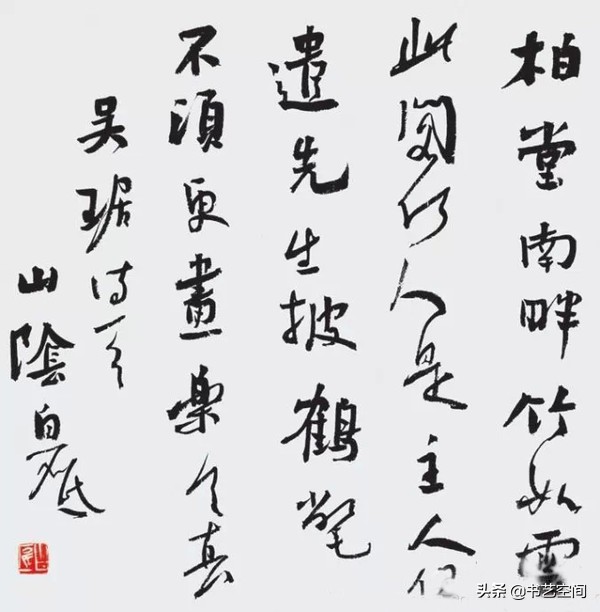 柏堂南畔竹如雲
此閣何人是主人但
遣先生披鶴氅
不須更畫樂天真
吴琚诗一首
山陰白砥
头条 @书艺空间